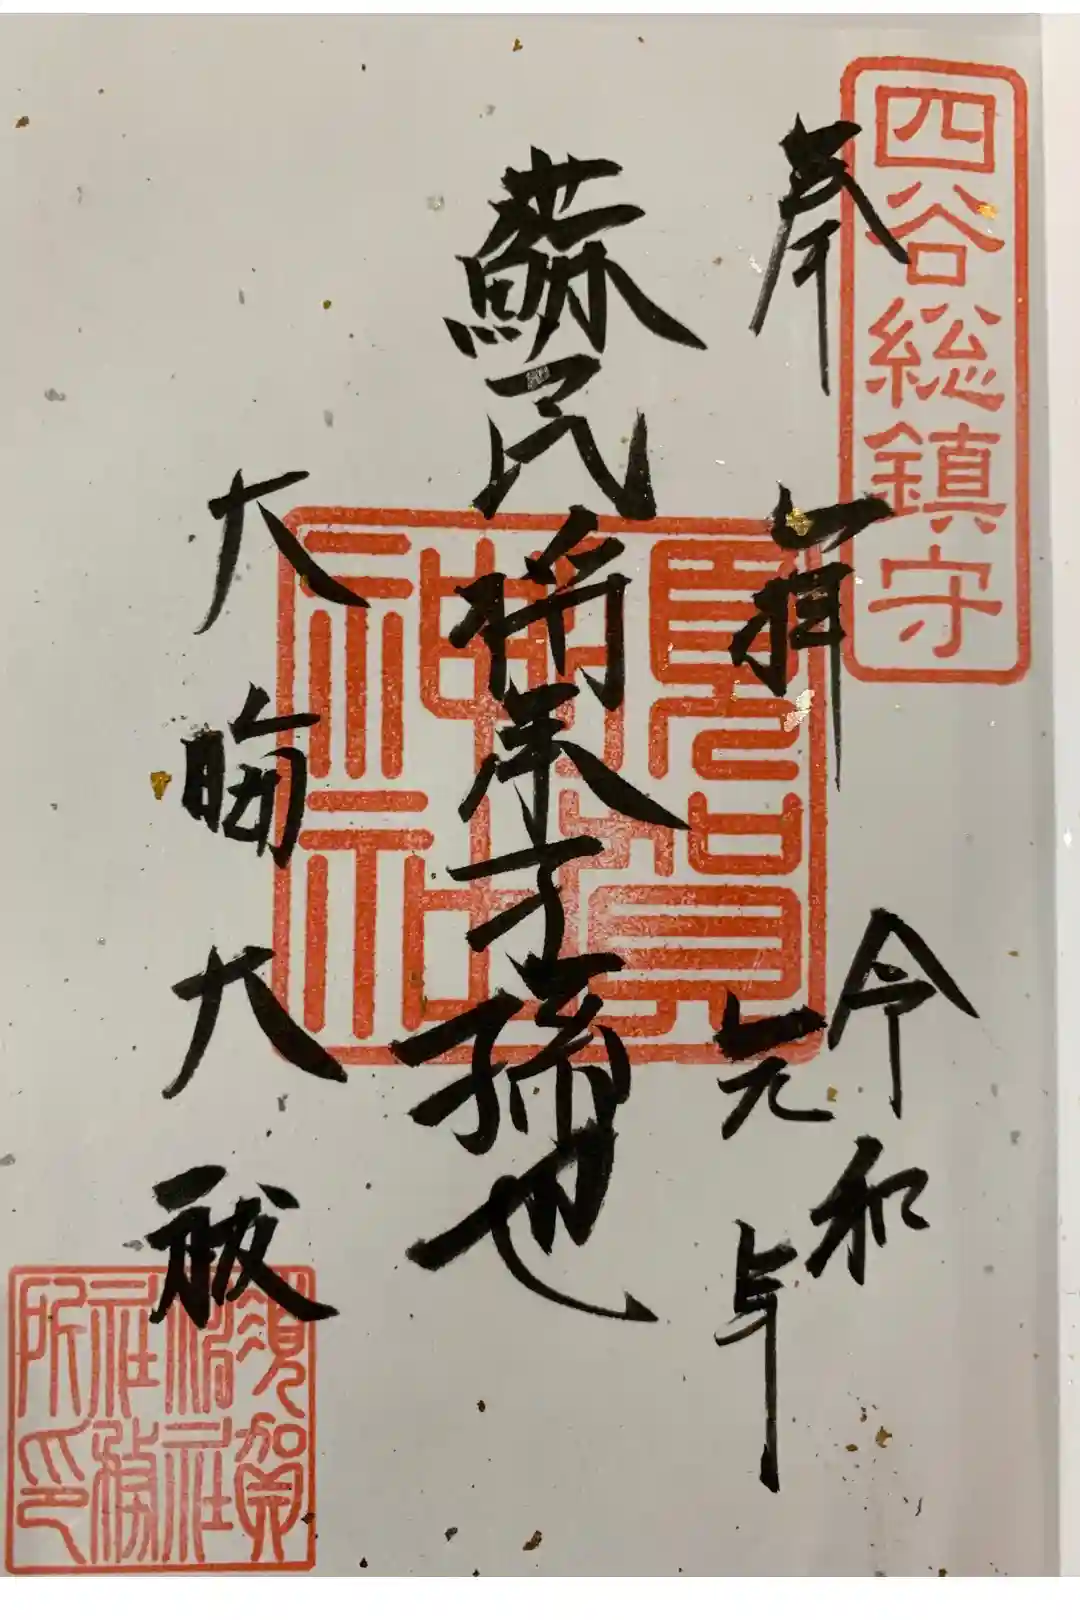 四谷総鎮守
奉拝
令和
元年
蘇民将来子孫也
須賀神社
大晦大祓
須賀神社社務所印